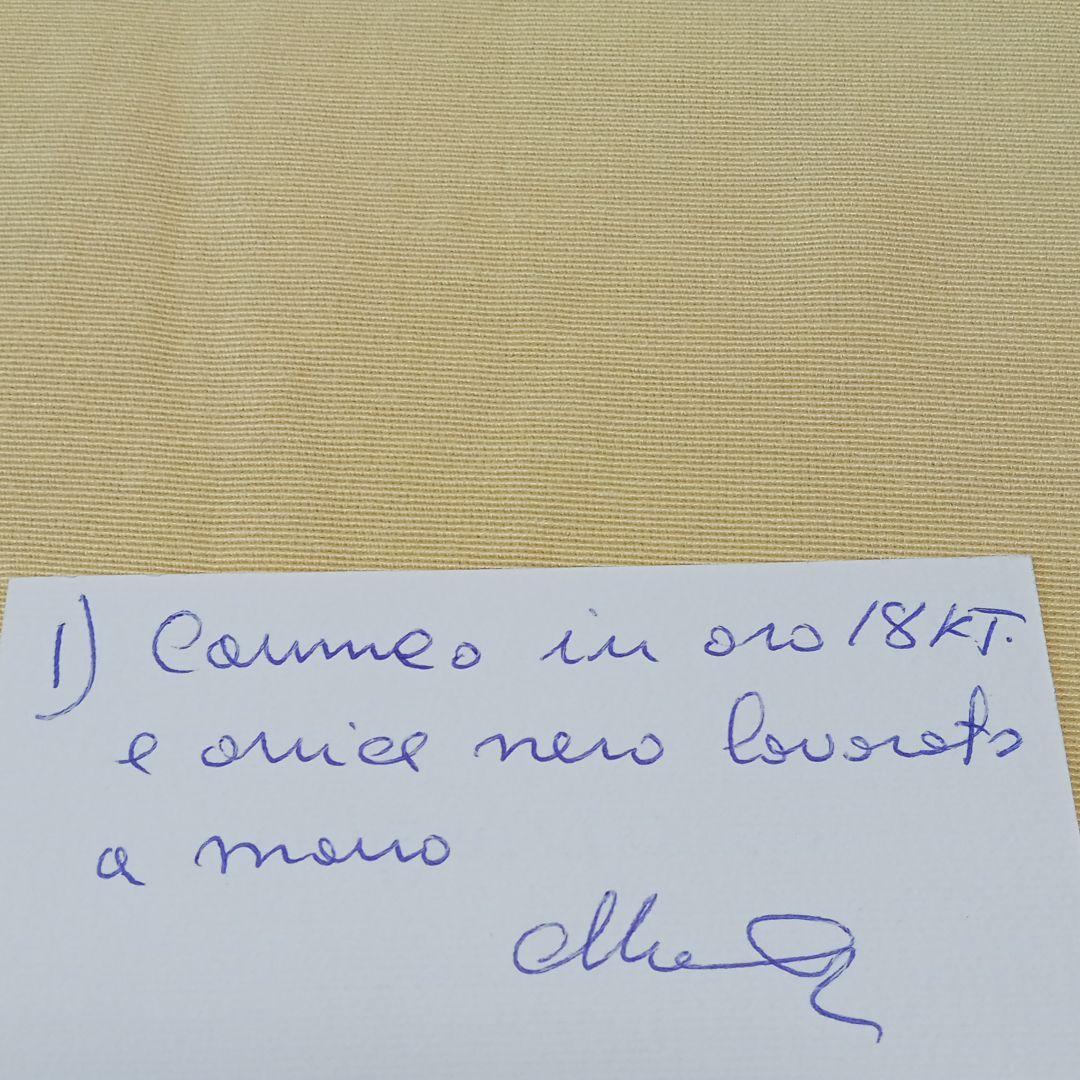 1) Cammeo in oro 18 KT.
e onice nero lavorato
a mano